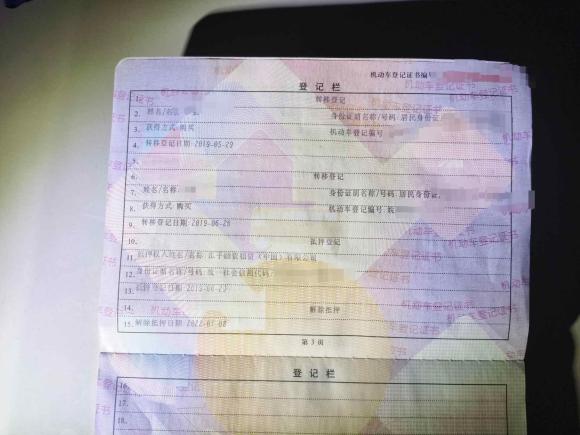 机动车登记证书编号
登 记 栏
1. 转移登记
2. 姓名/名称: 身份证明名称/号码:居民身份证
3. 获得方式:购买 机动车登记编号
4. 转移登记日期:2019-05-29
5.
6. 转移登记
7. 姓名/名称: 身份证明名称/号码:居民身份证
8. 获得方式:购买 机动车登记编号:皖
9. 转移登记日期:2019-06-26
10. 抵押登记
11. 抵押权人姓名/名称: 融资租赁(中国)有限公司
12. 身份证明名称/号码:统一社会信用代码
13. 抵押登记日期:2019-06-27
14. 解除抵押
15. 解除抵押日期:2022-01-08
第 3 页
登 记 栏
16.
17.
18.
机动车登记证书